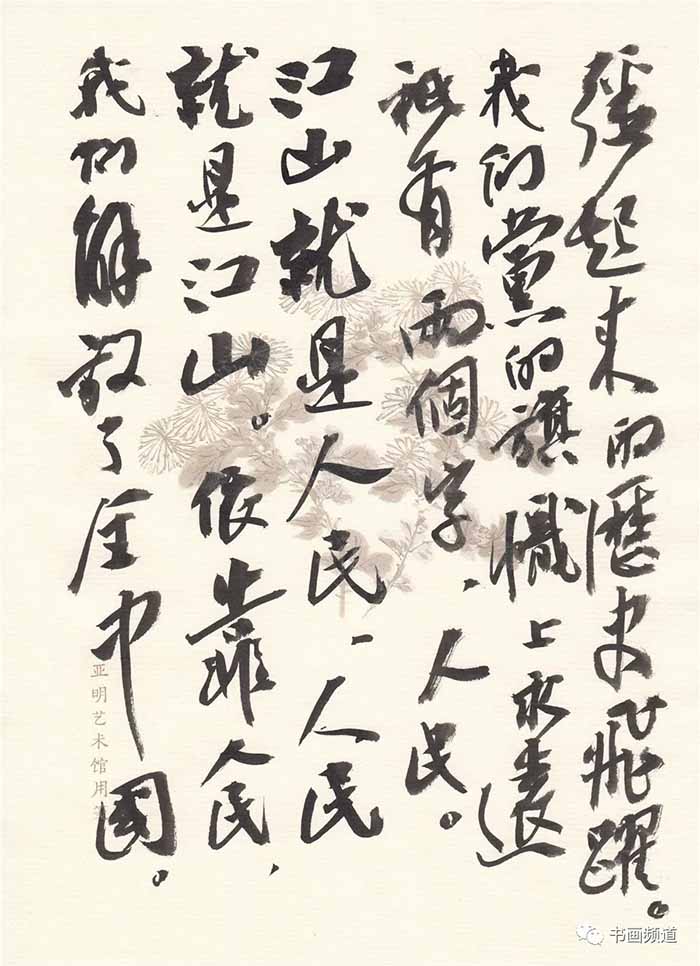 强起来的歷史飛躍。
我们黨的旗幟上永遠
祇有兩個字、人民。
江山就是人民、人民
就是江山。依靠人民，
我们解放了全中國。
亚明艺术馆用笺
书画频道